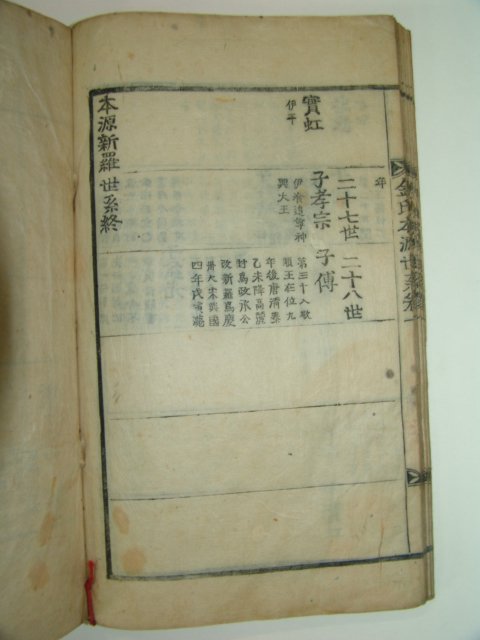 金氏本源世系
年
二十七世
二十八世
實虹
伊平
子孝宗
子傅
伊飡追尊神
興大王
第五十六敬
順王在位九
年後唐清泰
乙未降高麗
封爲政承公
改新羅爲慶
州大宋興國
四年戊寅薨
本源新羅世系終